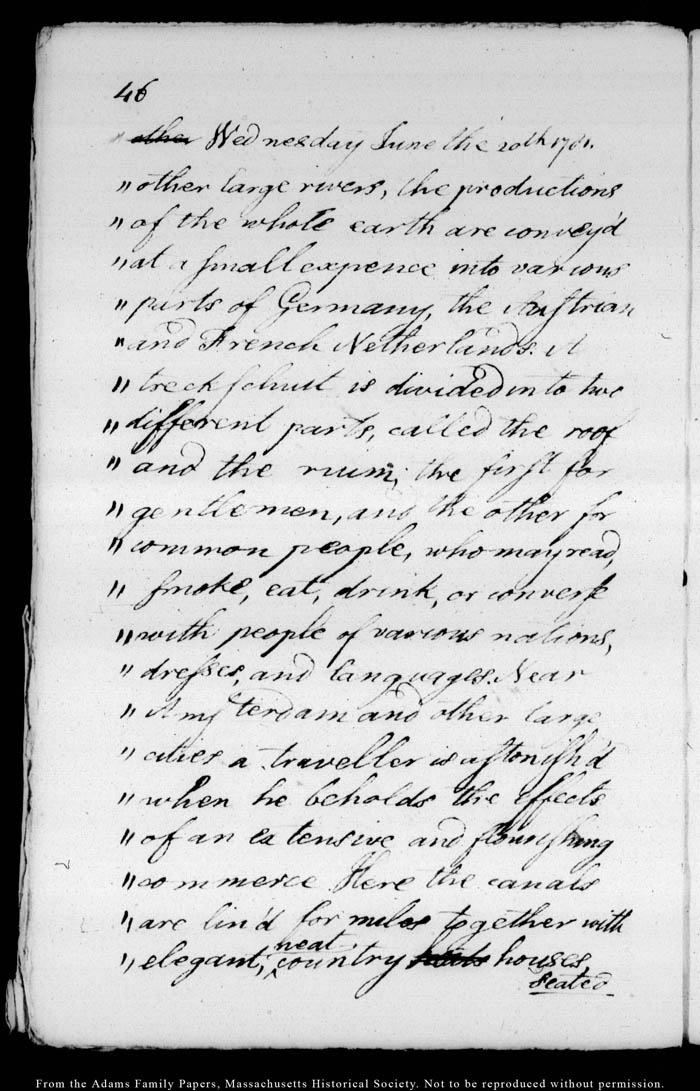 46
other Wednesday June the 20th 1781.
" other large rivers, the productions
" of the whole earth are convey'd
" at a small expence into various
" parts of Germany, the Austrian
" and French Netherlands. A
" treckschuit is divided into two
" different parts, called the roof
" and the ruim; the first for
" gentlemen, and the other for
" common people, who may read,
" smoke, eat, drink, or converse
" with people of various nations,
" dresses, and languages. Near
" Amsterdam and other large
" cities a traveller is astonish'd
" when he beholds the effects
" of an extensive and flourishing
" commerce Here the canals
" are lin'd for miles together with
" elegant, neat country seats houses,
seated
From the Adams Family Papers, Massachusetts Historical Society. Not to be reproduced without permission.